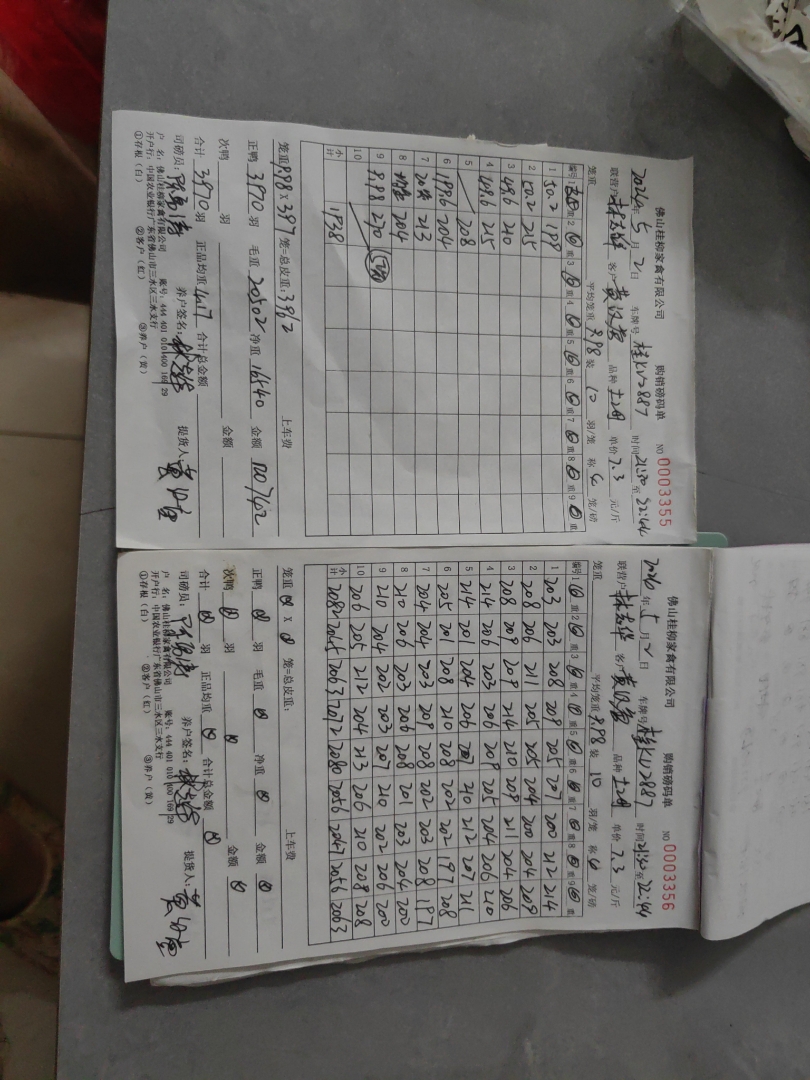 佛山桂柳家禽有限公司 购销磅码单 NO 0003355
2026年 5月 2日 车牌号 桂KV2887 时间 21:30 至 22:44
联营户 客户 品种 单价 7.3 元/斤
笼重 平均笼重 9.98 装 10 羽/笼 称 笼/磅
编号 1 重 2 重 3 重 4 重 5 重 6 重 7 重 8 重 9 重
1 50.2 198
2 50.2 215
3 49.6 210
4 49.6 215
5 208
6 199.6 204
7 213
8 204
9 9.98 270
10
小计 1938
笼重 9.98 × 397 笼=总皮重: 3962 上车费
正鸭 3970 羽 毛重 20502 净重 16540 金额 120742
次鸭 羽 金额
合计 3970 羽 正品均重 4.17 合计总金额
司磅员: 养户签名: 提货人:
户 名: 佛山桂柳家禽有限公司 账号: 444 401 010 400 169 29
开户行: 中国农业银行广东省佛山市三水区三水支行
①存根(白) ②客户(红) ③养户(黄)
佛山桂柳家禽有限公司 购销磅码单 NO 0003356
2026年 5月 2日 车牌号 桂KV2887 时间 21:30 至 22:44
联营户 客户 品种 单价 7.3 元/斤
笼重 平均笼重 9.98 装 10 羽/笼 称 笼/磅
编号 1 重 2 重 3 重 4 重 5 重 6 重 7 重 8 重 9 重
1 203 203 208 209 205 207 200 212 214
2 208 206 211 205 205 204 200 204 209
3 208 209 209 214 210 209 211 204 206
4 214 206 203 206 209 205 204 206 210
5 214 201 204 206 207 210 212 207 211
6 205 201 208 210 208 202 202 197 208
7 204 204 203 207 208 202 203 208 197
8 210 206 203 206 208 201 203 204 200
9 210 204 202 203 207 210 202 206 200
10 206 205 212 204 213 206 210 208 208
小计 2082 2045 2063 2072 2080 2056 2047 2056 2063
笼重 × 笼=总皮重: 上车费
正鸭 羽 毛重 净重 金额
次鸭 羽 金额
合计 羽 正品均重 合计总金额
司磅员: 养户签名: 提货人:
户 名: 佛山桂柳家禽有限公司 账号: 444 401 010 400 169 29
开户行: 中国农业银行广东省佛山市三水区三水支行
①存根(白) ②客户(红) ③养户(黄)